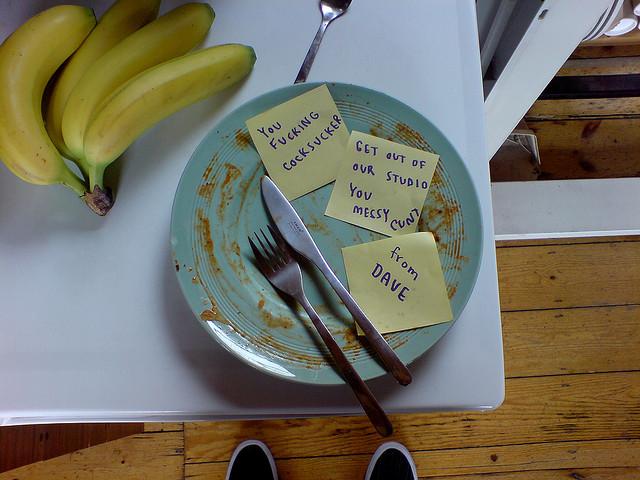 YOU
FUCKING
COCKSUCKER
GET OUT OF
OUR STUDIO
YOU
MESSY CUNT
from
DAVE